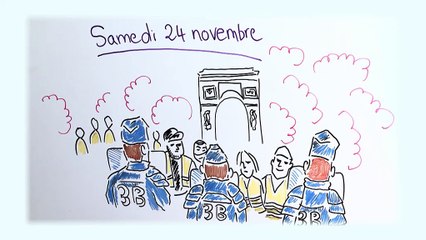 Samedi 24 novembre
3B
3B
3B